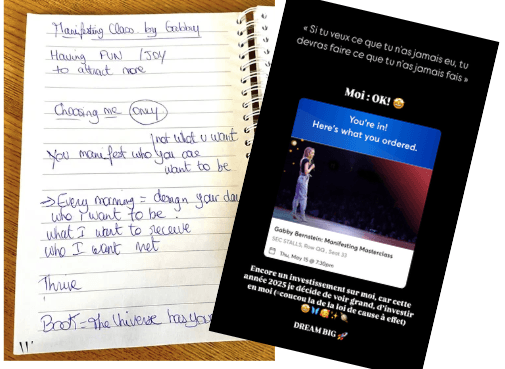 Manifesting Class by Gabby
Having FUN / JOY
to attract more
Choosing me ONLY
not what u want
You manifest who you are
want to be
→ Every morning = design your day
who I want to be.
what I want to receive
who I want met
Thrive
Book = The Universe has your
« Si tu veux ce que tu n'as jamais eu, tu
devras faire ce que tu n'as jamais fais »
Moi : OK! 🤩
You're in!
Here's what you ordered.
Gabby Bernstein: Manifesting Masterclass
SEC STALLS, Row GG, Seat 33
Thu, May 15 @ 7:30pm
Encore un investissement sur moi, car cette
année 2025 je décide de voir grand, d'investir
en moi (=coucou la de la loi de cause à effet)
DREAM BIG 🚀